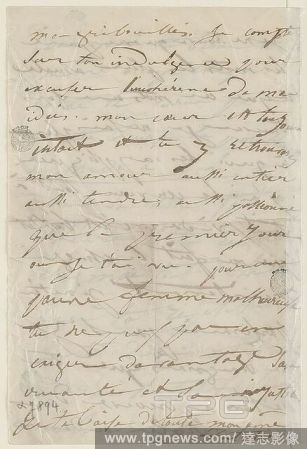 mes gribouillis. Je compte
sur ton indulgence pour
excuser l'incohérence de mes
idées. mon cœur est toujours
intact et tu y retrouves
mon amour aussi entier
aussi tendre, aussi passionné
que le premier jour
où je t'ai vu. pour une
pauvre femme malheureuse
tu ne peux pas en
exiger davantage
et la
Je te baise de toute mon âme
α 7894
TPG
www.tpgnews.com/達志影像